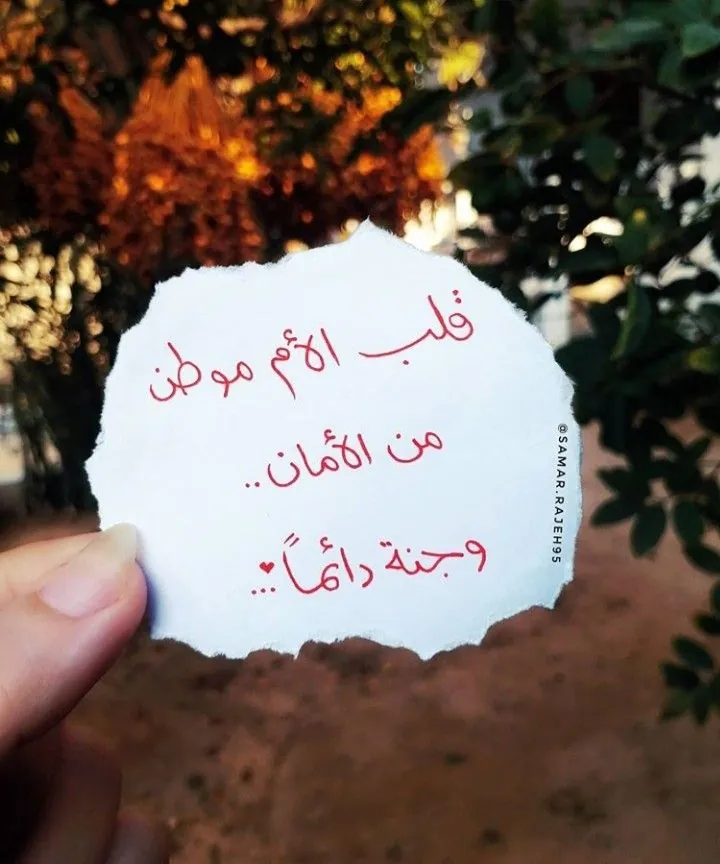 قلب الأم موطن
من الأمان..
وجنة دائماً...♥
@SAMAR.RAJEH95